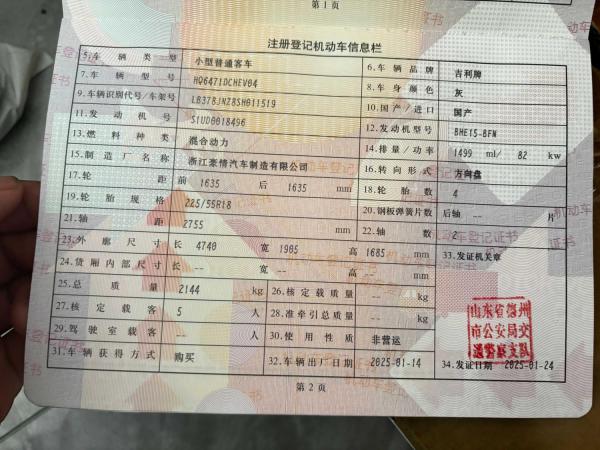 第1页
注册登记机动车信息栏
5.车辆类型 小型普通客车 6.车辆品牌 吉利牌
7.车辆型号 HQ6471DCHEV04 8.车身颜色 灰
9.车辆识别代号/车架号 LB378JNZ8SH011519 10.国产/进口 国产
11.发动机号 S1UD0018496 12.发动机型号 BHE15-BFN
13.燃料种类 混合动力 14.排量/功率 1499 ml/ 82 kw
15.制造厂名称 浙江豪情汽车制造有限公司 16.转向形式 方向盘
17.轮距 前 1635 后 1635 mm 18.轮胎数 4
19.轮胎规格 225/55R18 20.钢板弹簧片数 后轴 -- 片
21.轴距 2755 mm 22.轴数 2
23.外廓尺寸 长 4740 宽 1905 高 1685 mm 33.发证机关章
24.货厢内部尺寸 长 -- 宽 -- 高 -- mm
25.总质量 2144 kg 26.核定载质量 -- kg
27.核定载客 5 人 28.准牵引总质量 -- kg
29.驾驶室载客 -- 人 30.使用性质 非营运
31.车辆获得方式 购买 32.车辆出厂日期 2025-01-14 34.发证日期 2025-01-24
山东省德州
市公安局交
通警察支队
第2页